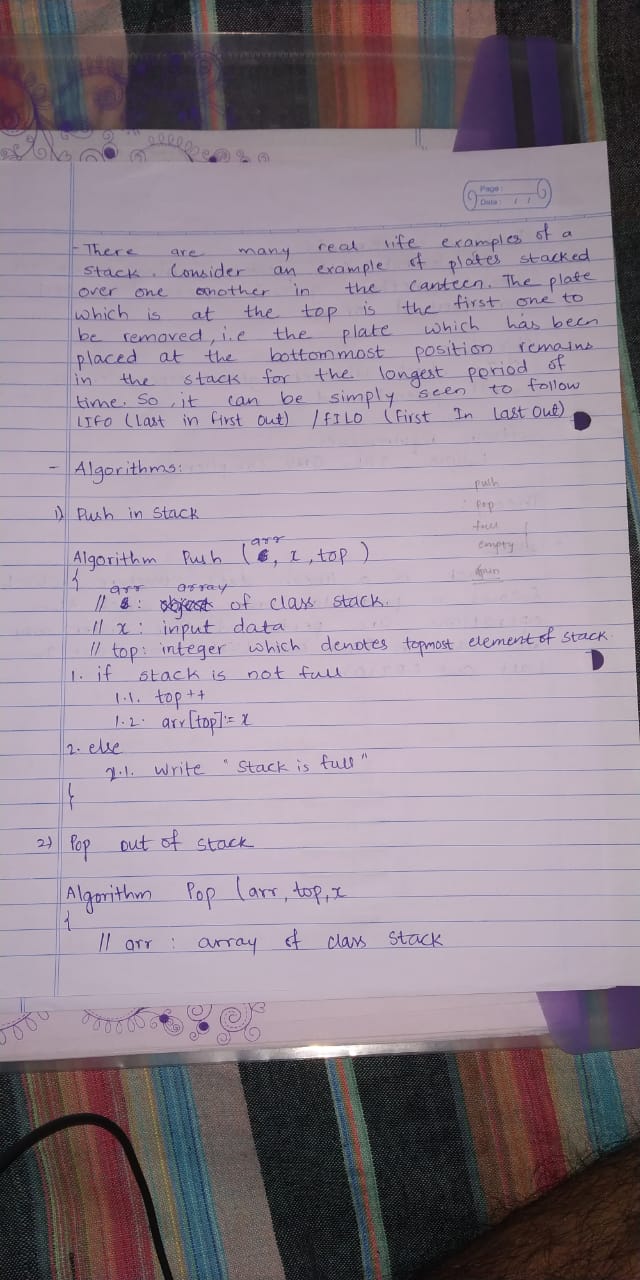 Page :
Date : / /
- There are many real life examples of a
stack. Consider an example of plates stacked
over one another in the canteen. The plate
which is at the top is the first one to
be removed, i.e the plate which has been
placed at the bottommost position remains
in the stack for the longest period of
time. So, it can be simply seen to follow
LIFO (Last in first out) / FILO (First In Last Out)
- Algorithms:
push
1) Push in stack
pop
full
empty
Algorithm Push (arr, x, top)
{
// arr: array of class stack.
// x: input data
// top: integer which denotes topmost element of stack
1. if stack is not full
1.1. top++
1.2. arr[top] = x
2. else
2.1. Write "Stack is full"
}
2) Pop out of stack
Algorithm Pop (arr, top, x
{
// arr : array of class stack